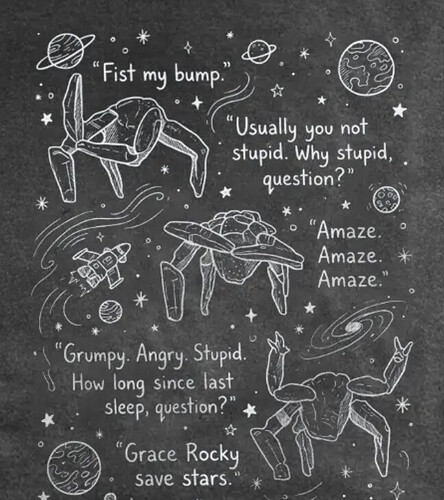 "Fist my bump."
"Usually you not
stupid. Why stupid,
question?"
"Amaze.
Amaze.
Amaze."
"Grumpy. Angry. Stupid.
How long since last
sleep, question?"
"Grace Rocky
save stars."